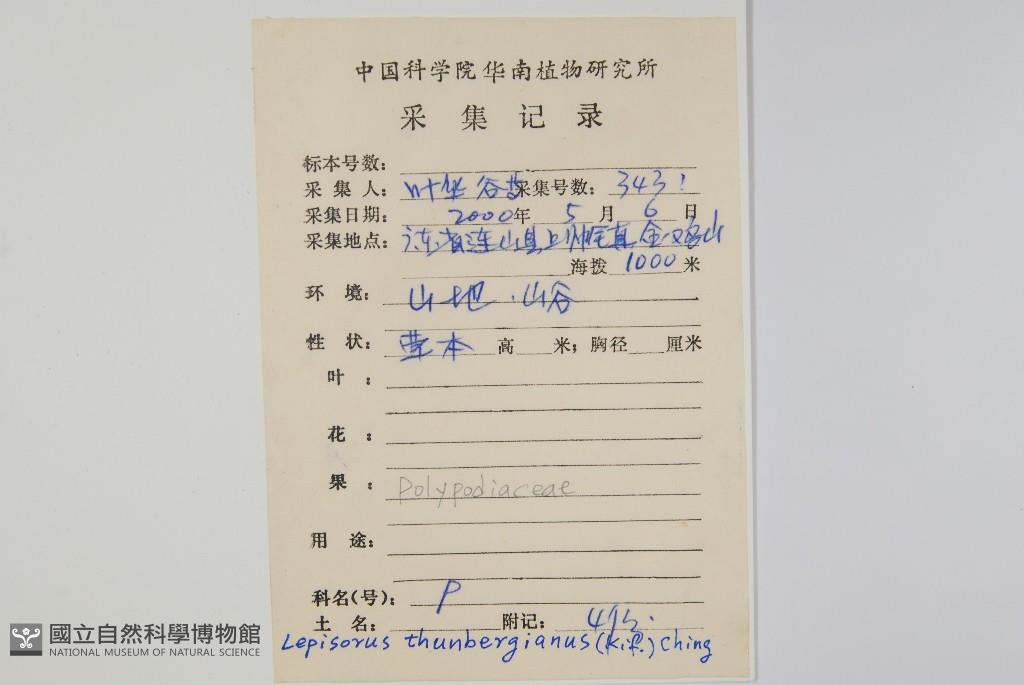 中国科学院华南植物研究所
采集记录
标本号数：
采集人：叶华谷 采集号数：343
采集日期：2000年5月6日
采集地点：广东省连山县上帅 金鸡山
海拨 1000 米
环境：山地．山谷
性状：草本 高 米；胸径 厘米
叶：
花：
果：Polypodiaceae
用途：
科名(号)：P
土名： 附记：
Lepisorus thunbergianus (Kif.) Ching
國立自然科學博物館
NATIONAL MUSEUM OF NATURAL SCIENCE